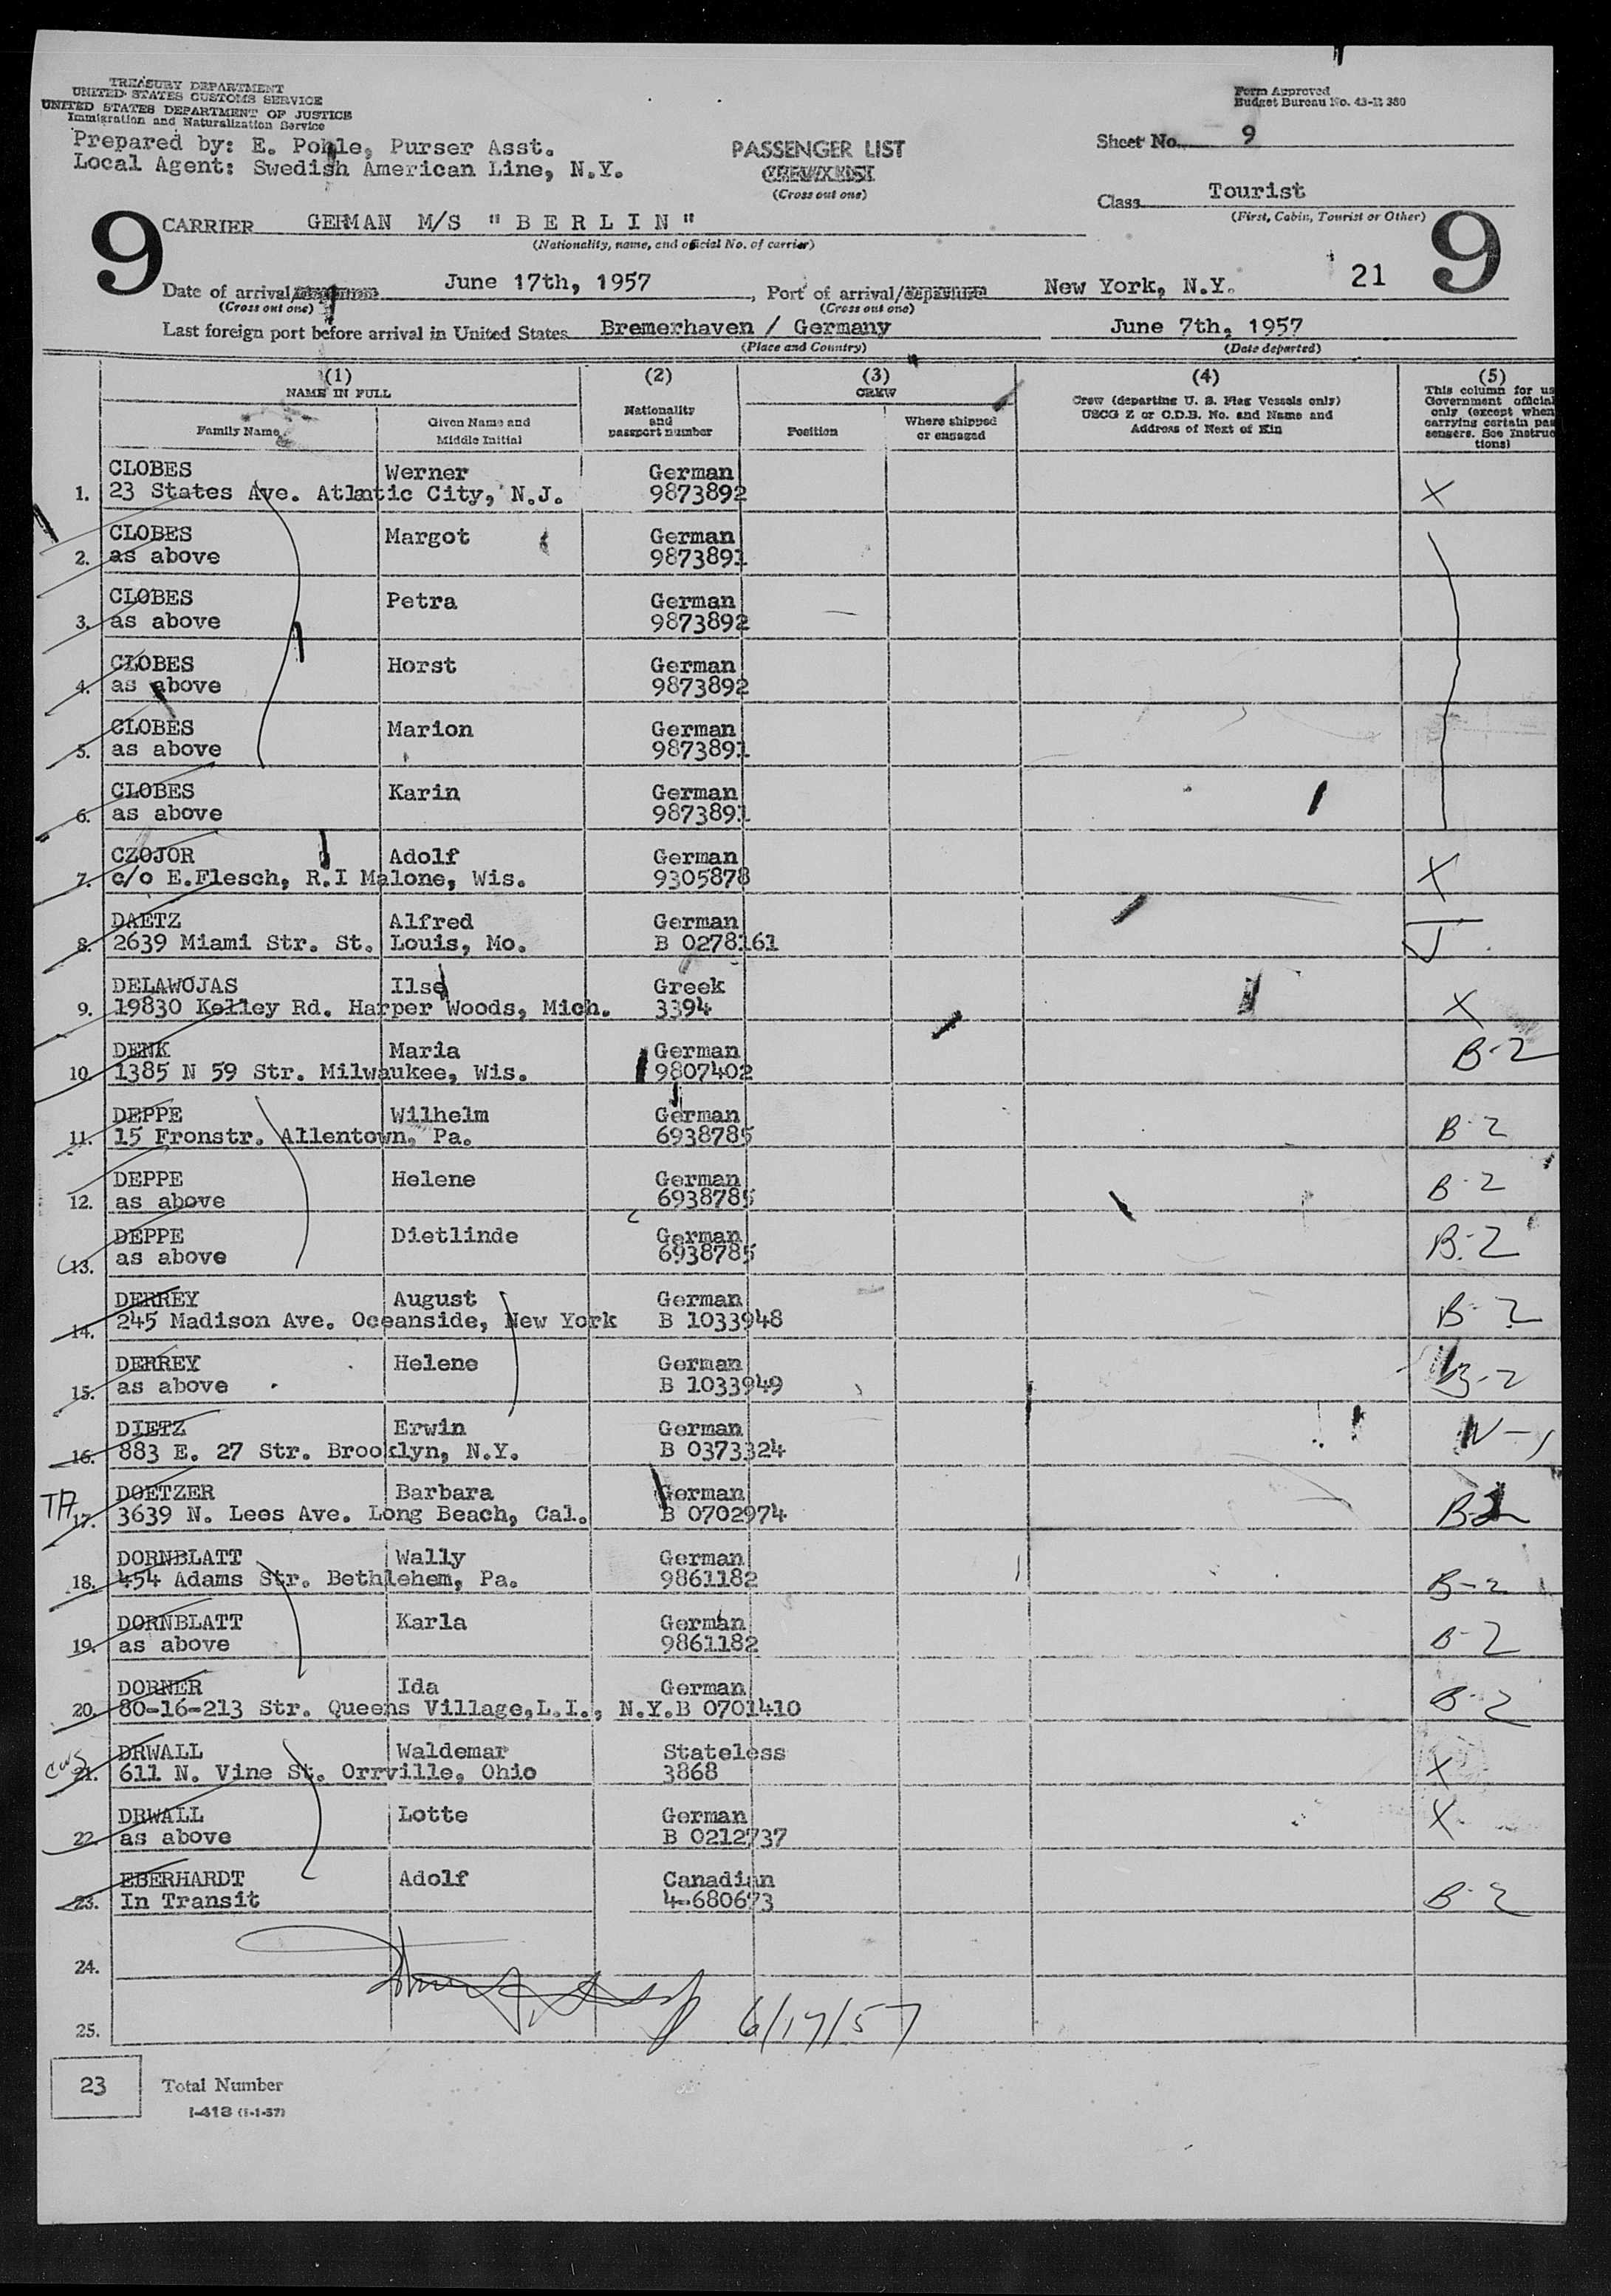 TREASURY DEPARTMENT
UNITED STATES CUSTOMS SERVICE
UNITED STATES DEPARTMENT OF JUSTICE
Immigration and Naturalization Service
Form Approved
Budget Bureau No. 43-R 380
Prepared by: E. Pohle, Purser Asst.
Local Agent: Swedish American Line, N.Y.
PASSENGER LIST
CREW LIST
(Cross out one)
Sheet No. 9
Class Tourist
(First, Cabin, Tourist or Other)
9
CARRIER GERMAN M/S "BERLIN"
(Nationality, name, and official No. of carrier)
9
Date of arrival/departure June 17th, 1957, Port of arrival/departure New York, N.Y. 21
(Cross out one) (Cross out one)
Last foreign port before arrival in United States Bremerhaven / Germany June 7th, 1957
(Place and Country) (Date departed)
(1) (2) (3) (4) (5)
NAME IN FULL
Family Name
Given Name and Middle Initial
Nationality and passport number
CREW
Position
Where shipped or engaged
Crew (departing U. S. Flag Vessels only)
USCG Z or C.D.B. No. and Name and
Address of Next of Kin
This column for us
Government official
only (except when
carrying certain pas
sengers. See Instruc
tions)
CLOBES Werner German
1. 23 States Ave. Atlantic City, N.J. 9873892 X
CLOBES Margot German
2. as above 9873891
CLOBES Petra German
3. as above 9873892
CLOBES Horst German
4. as above 9873892
CLOBES Marion German
5. as above 9873891
CLOBES Karin German
6. as above 9873891
CZOJOR Adolf German
7. c/o E.Flesch, R.I Malone, Wis. 9305878 X
DAETZ Alfred German
8. 2639 Miami Str. St. Louis, Mo. B 0278161 J
DELAWOJAS Ilse Greek
9. 19830 Kelley Rd. Harper Woods, Mich. 3394 X
DENK Maria German B-2
10. 1385 N 59 Str. Milwaukee, Wis. 9807402
DEPPE Wilhelm German
11. 15 Fronstr. Allentown, Pa. 6938785 B-2
DEPPE Helene German
12. as above 6938785 B-2
DEPPE Dietlinde German
13. as above 6938785 B-2
DERREY August German
14. 245 Madison Ave. Oceanside, New York B 1033948 B-2
DERREY Helene German
15. as above B 1033949 B-2
DIETZ Erwin German
16. 883 E. 27 Str. Brooklyn, N.Y. B 0373324
DOETZER Barbara German
TA 17. 3639 N. Lees Ave. Long Beach, Cal. B 0702974 B-2
DORNBLATT Wally German
18. 454 Adams Str. Bethlehem, Pa. 9861182 B-2
DORNBLATT Karla German
19. as above 9861182 B-2
DORNER Ida German
20. 80-16-213 Str. Queens Village,L.I., N.Y. B 0701410 B-2
DRWALL Waldemar Stateless
21. 611 N. Vine St. Orrville, Ohio 3868 X
DRWALL Lotte German
22. as above B 0212737 X
EBERHARDT Adolf Canadian
23. In Transit 4-680673 B-2
24.
25. 6/17/57
23 Total Number
I-418 (1-1-57)